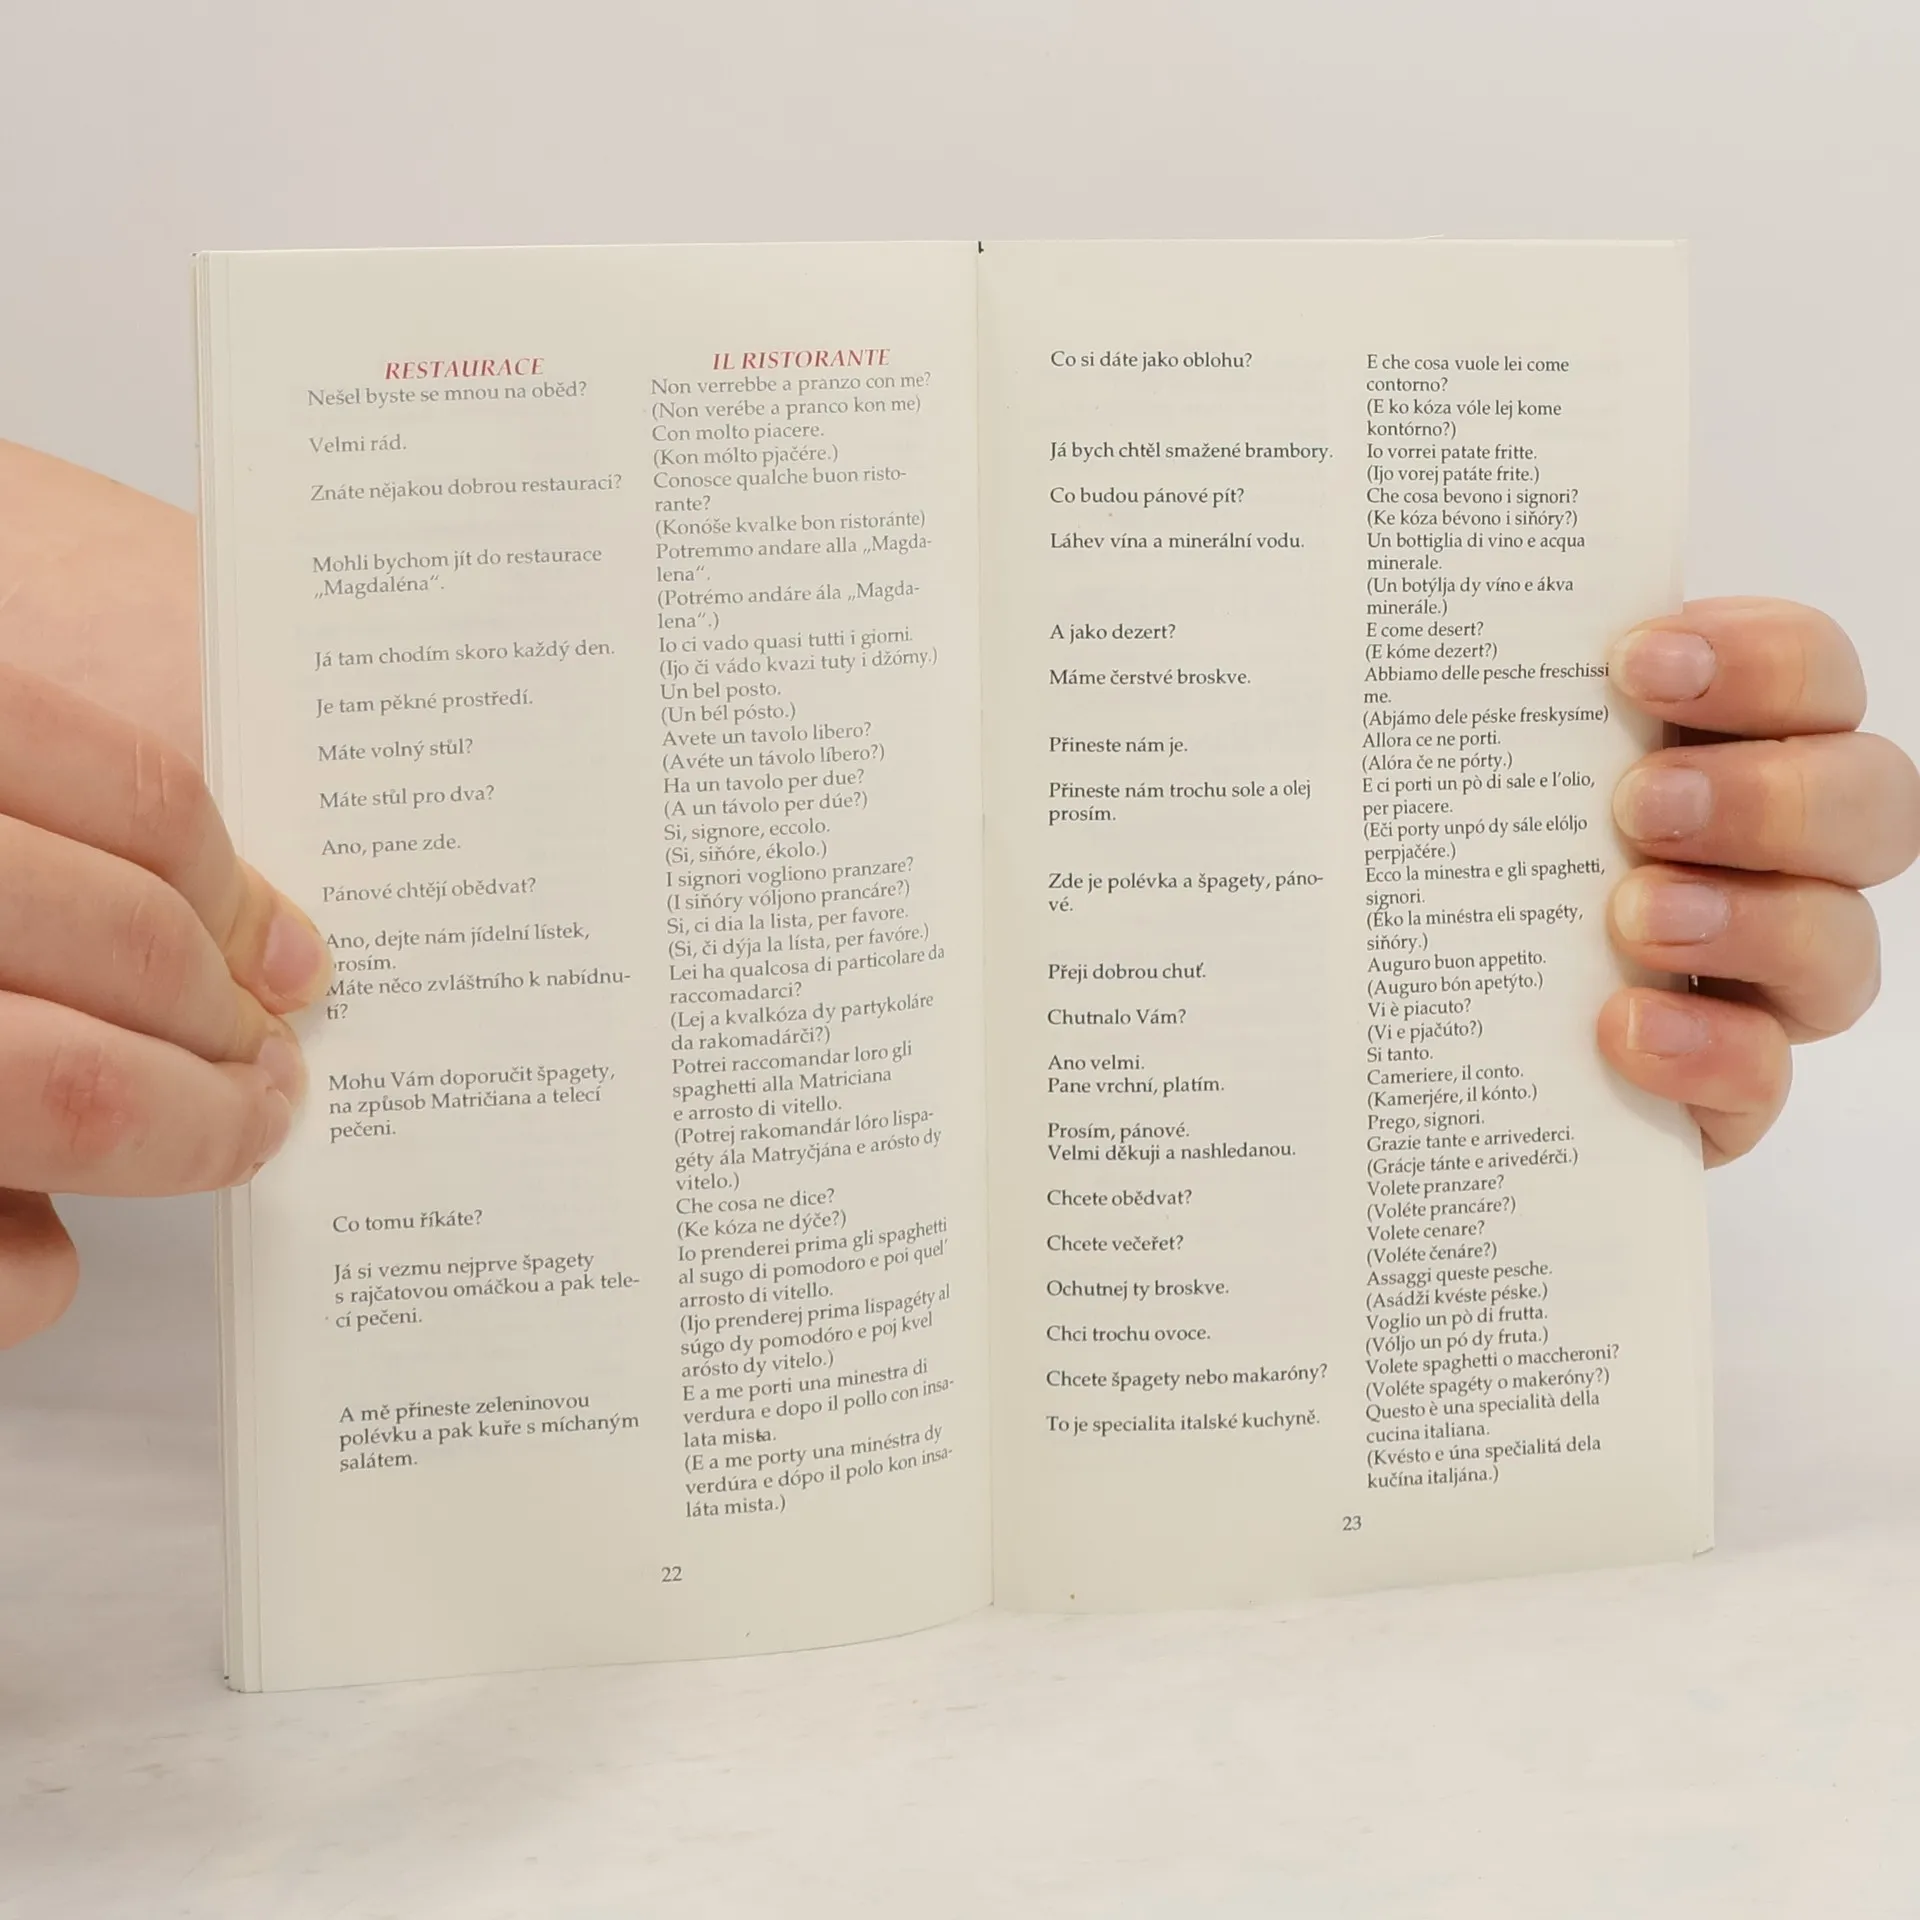 RESTAURACE
Nešel byste se mnou na oběd?
Velmi rád.
Znáte nějakou dobrou restauraci?
Mohli bychom jít do restaurace
„Magdaléna“.
Já tam chodím skoro každý den.
Je tam pěkné prostředí.
Máte volný stůl?
Máte stůl pro dva?
Ano, pane zde.
Pánové chtějí obědvat?
Ano, dejte nám jídelní lístek,
rosím.
Máte něco zvláštního k nabídnu-
tí?
Mohu Vám doporučit špagety,
na způsob Matričiana a telecí
pečeni.
Co tomu říkáte?
Já si vezmu nejprve špagety
s rajčatovou omáčkou a pak tele-
cí pečeni.
A mě přineste zeleninovou
polévku a pak kuře s míchaným
salátem.
IL RISTORANTE
Non verrebbe a pranzo con me?
(Non verébe a pranco kon me)
Con molto piacere.
(Kon mólto pjačére.)
Conosce qualche buon risto-
rante?
(Konóše kvalke bon ristoránte)
Potremmo andare alla „Magda-
lena“.
(Potrémo andáre ála „Magda-
lena“.)
Io ci vado quasi tutti i giorni.
(Ijo či vádo kvazi tuty i džórny.)
Un bel posto.
(Un bél pósto.)
Avete un tavolo libero?
(Avéte un távolo líbero?)
Ha un tavolo per due?
(A un távolo per dúe?)
Si, signore, eccolo.
(Si, siňóre, ékolo.)
I signori vogliono pranzare?
(I siňóry vóljono prancáre?)
Si, ci dia la lista, per favore.
(Si, či dýja la lísta, per favóre.)
Lei ha qualcosa di particolare da
raccomadarci?
(Lej a kvalkóza dy partykoláre
da rakomadárči?)
Potrei raccomandar loro gli
spaghetti alla Matriciana
e arrosto di vitello.
(Potrej rakomandár lóro lispa-
géty ála Matryčjána e arósto dy
vitelo.)
Che cosa ne dice?
(Ke kóza ne dýče?)
Io prenderei prima gli spaghetti
al sugo di pomodoro e poi quel'
arrosto di vitello.
(Ijo prenderej prima lispagéty al
súgo dy pomodóro e poj kvel
arósto dy vitelo.)
E a me porti una minestra di
verdura e dopo il pollo con insa-
lata mista.
(E a me porty una minéstra dy
verdúra e dópo il polo kon insa-
láta mista.)
22
Co si dáte jako oblohu?
Já bych chtěl smažené brambory.
Co budou pánové pít?
Láhev vína a minerální vodu.
A jako dezert?
Máme čerstvé broskve.
Přineste nám je.
Přineste nám trochu sole a olej
prosím.
Zde je polévka a špagety, páno-
vé.
Přeji dobrou chuť.
Chutnalo Vám?
Ano velmi.
Pane vrchní, platím.
Prosím, pánové.
Velmi děkuji a nashledanou.
Chcete obědvat?
Chcete večeřet?
Ochutnej ty broskve.
Chci trochu ovoce.
Chcete špagety nebo makaróny?
To je specialita italské kuchyně.
E che cosa vuole lei come
contorno?
(E ko kóza vóle lej kome
kontórno?)
Io vorrei patate fritte.
(Ijo vorej patáte frite.)
Che cosa bevono i signori?
(Ke kóza bévono i siňóry?)
Un bottiglia di vino e acqua
minerale.
(Un botýlja dy víno e ákva
minerále.)
E come desert?
(E kóme dezert?)
Abbiamo delle pesche freschissi
me.
(Abjámo dele péske freskysíme)
Allora ce ne porti.
(Alóra če ne pórty.)
E ci porti un pò di sale e l'olio,
per piacere.
(Eči porty unpó dy sále elóljo
perpjačére.)
Ecco la minestra e gli spaghetti,
signori.
(Éko la minéstra eli spagéty,
siňóry.)
Auguro buon appetito.
(Auguro bón apetýto.)
Vi è piacuto?
(Vi e pjačúto?)
Si tanto.
Cameriere, il conto.
(Kamerjére, il kónto.)
Prego, signori.
Grazie tante e arrivederci.
(Grácje tánte e arivedérči.)
Volete pranzare?
(Voléte prancáre?)
Volete cenare?
(Voléte čenáre?)
Assaggi queste pesche.
(Asádži kvéste péske.)
Voglio un pò di frutta.
(Vóljo un pó dy fruta.)
Volete spaghetti o maccheroni?
(Voléte spagéty o makeróny?)
Questo è una specialità della
cucina italiana.
(Kvésto e úna spečialitá dela
kučína italjána.)
23